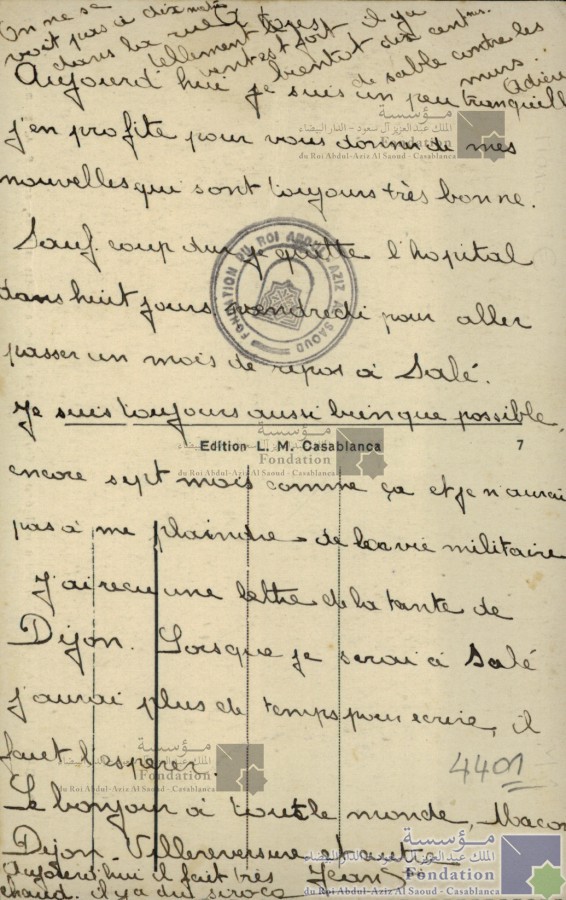 On ne se
voit pas à dix mètres
dans la rue
tellement le
vent est fort il y a
bientôt dix centms.
de sable contre les
murs.
Adieu
Aujourd'hui je suis un peu tranquille
j'en profite pour vous donner de mes
nouvelles qui sont toujours très bonne.
Sauf coup dur je quitte l'hopital
dans huit jours, vendredi pour aller
passer un mois de repos à Salé.
Je suis toujours aussi bien que possible,
Edition L. M. Casablanca 7
encore sept mois comme ça et je n'aurai
pas à me plaindre de la vie militaire
J'ai reçu une lettre de la tante de
Dijon. Lorsque je serai à Salé
j'aurai plus de temps pour ecrire, il
faut l'esperer.
4401
Le bonjour à tout le monde, Macon
Dijon Villereversure
Jean
Aujourd'hui il fait très
chaud. il y a du siroco
FONDATION DU ROI ABDUL AZIZ AL SAOUD
مؤسسة
الملك عبد العزيز آل سعود - الدار البيضاء
Fondation
du Roi Abdul-Aziz Al Saoud - Casablanca